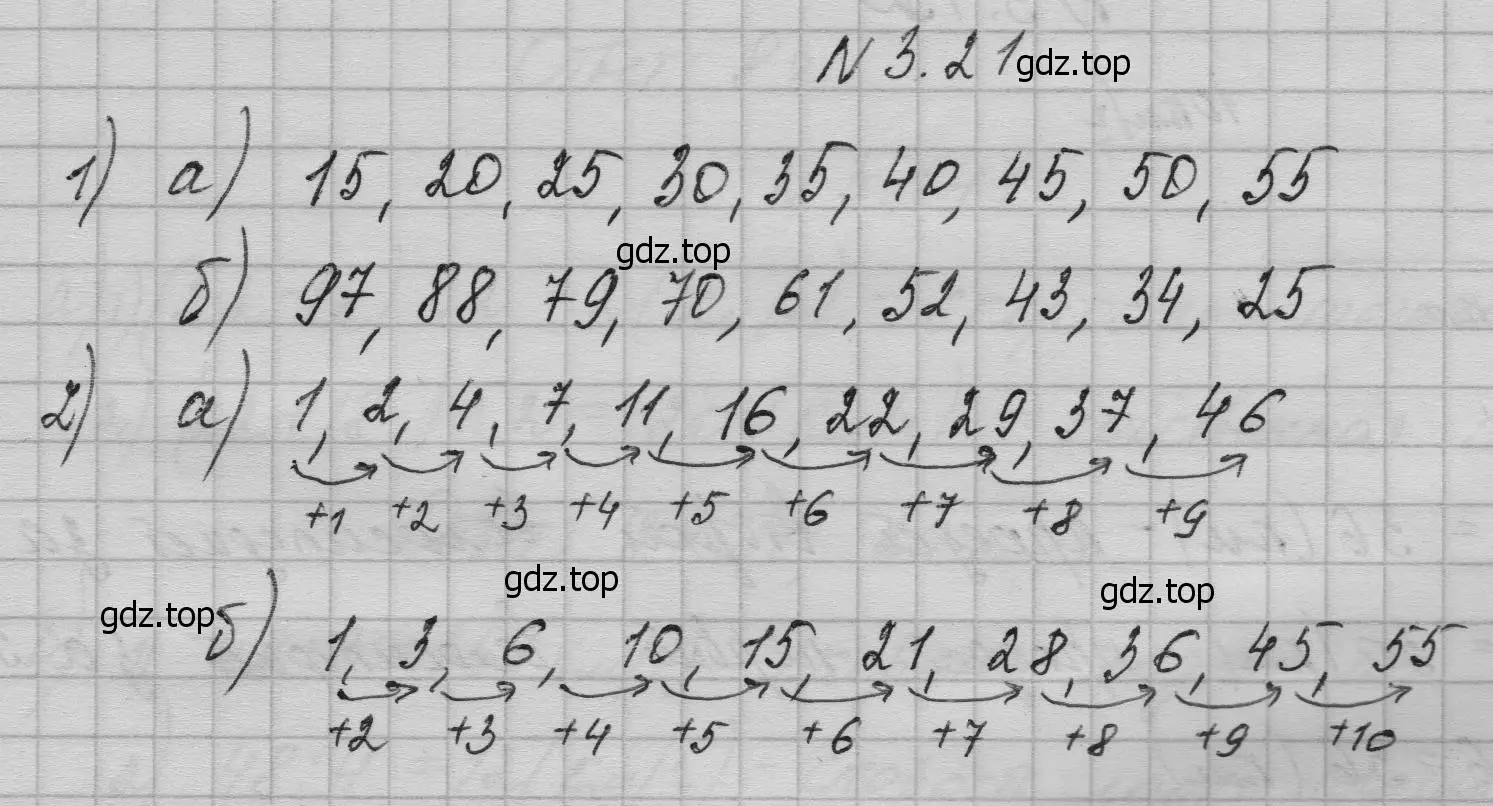 N 3.21 gdz.top
1) а) 15, 20, 25, 30, 35, 40, 45, 50, 55
gdz.top
б) 97, 88, 79, 70, 61, 52, 43, 34, 25
2) а) 1, 2, 4, 7, 11, 16, 22, 29, 37, 46
+1 +2 +3 +4 +5 +6 +7 +8 +9
gdz.top gdz.top
gdz.top б) 1, 3, 6, 10, 15, 21, 28, 36, 45, 55
+2 +3 +4 +5 +6 +7 +8 +9 +10